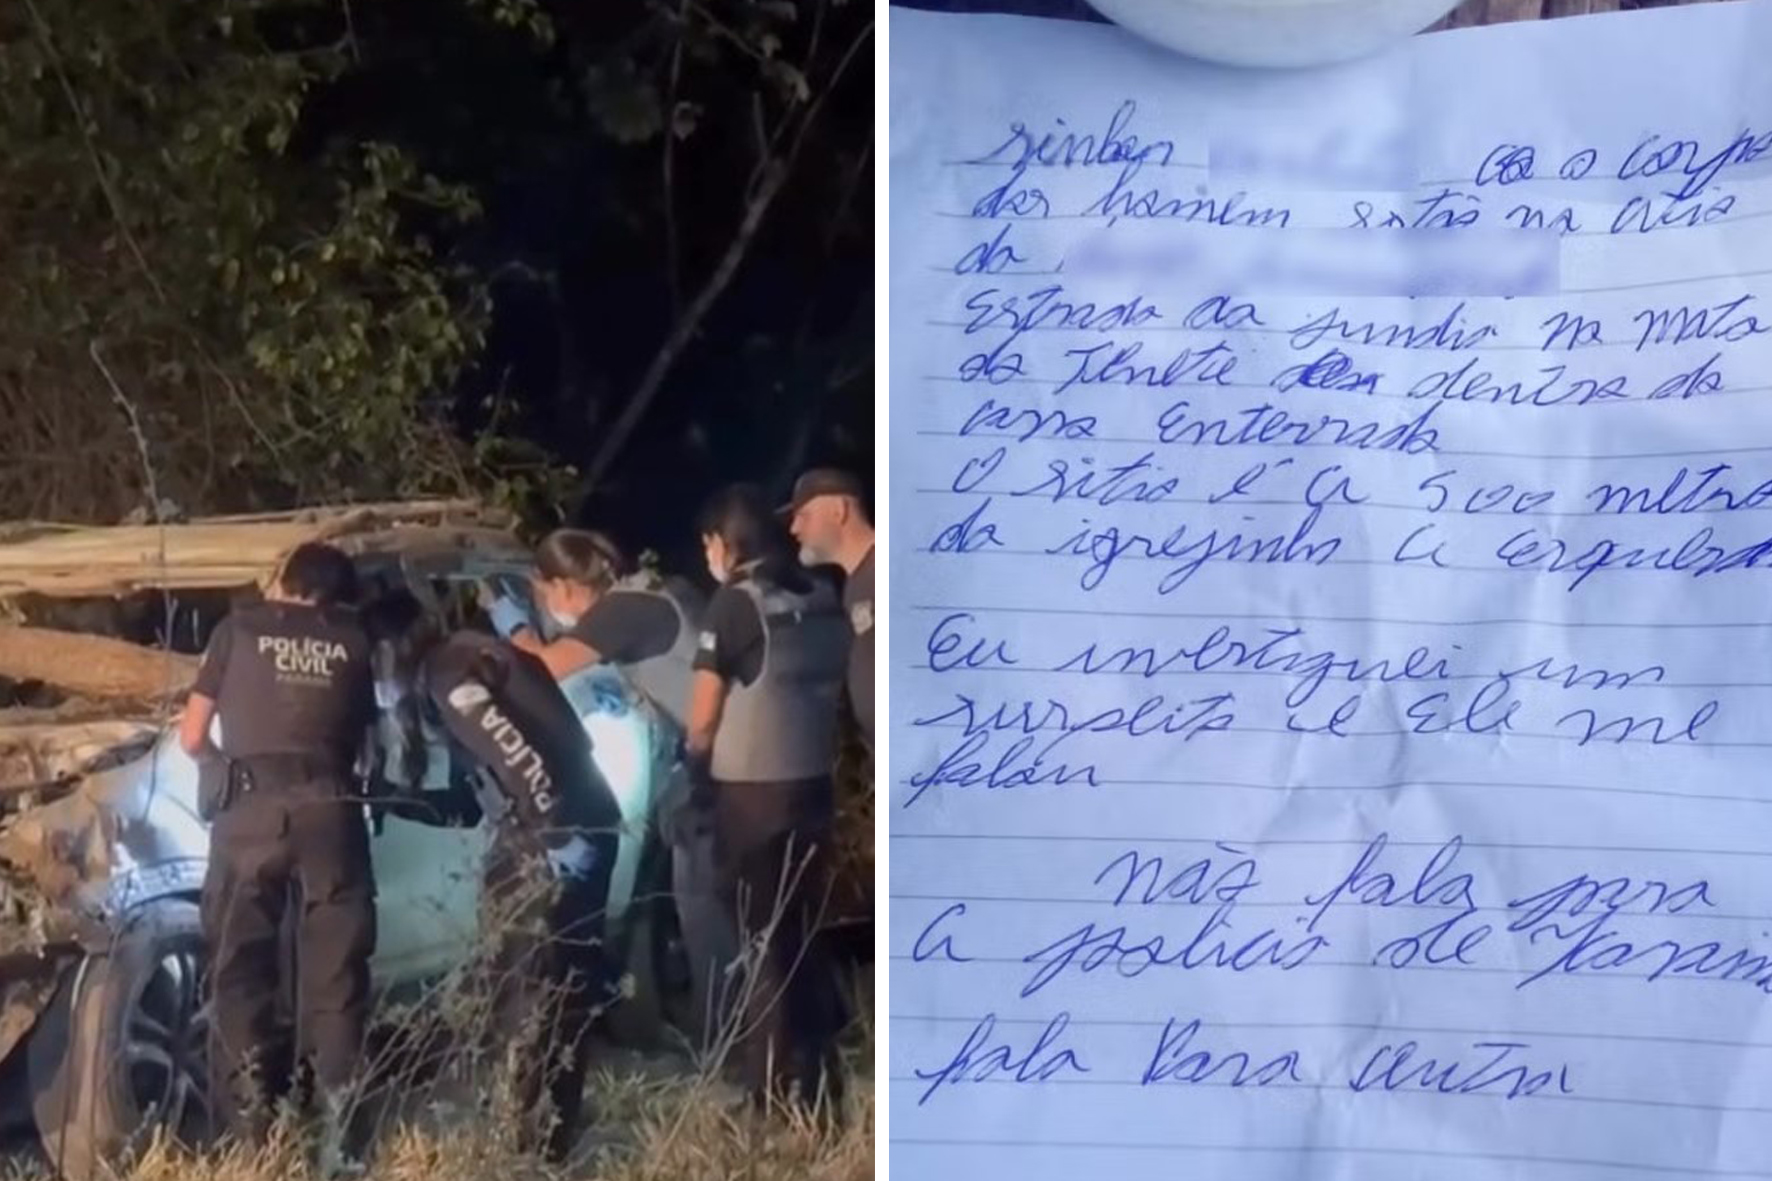 POLÍCIA
CIVIL
PARANÁ
POLÍCIA
o corpo
dos homem na
da
Estrada da jundia na mata
do Tenete dentro da
casa Enterrado
O sitio é a 500 metro
da igrejinha a Esquerda
Eu investiguei um
surpeito e Ele me
falou
não fala para
a policia de Icaraim
fala Para outra